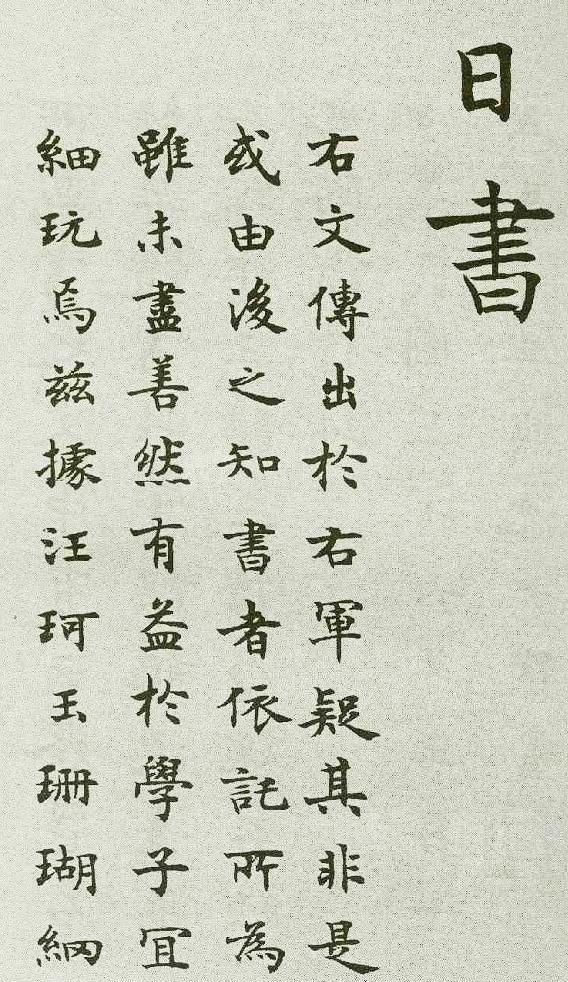 日書
右文傳出於右軍疑其非是
或由後之知書者依託所為
雖未盡善然有益於學子宜
細玩焉茲據汪珂玉珊瑚網